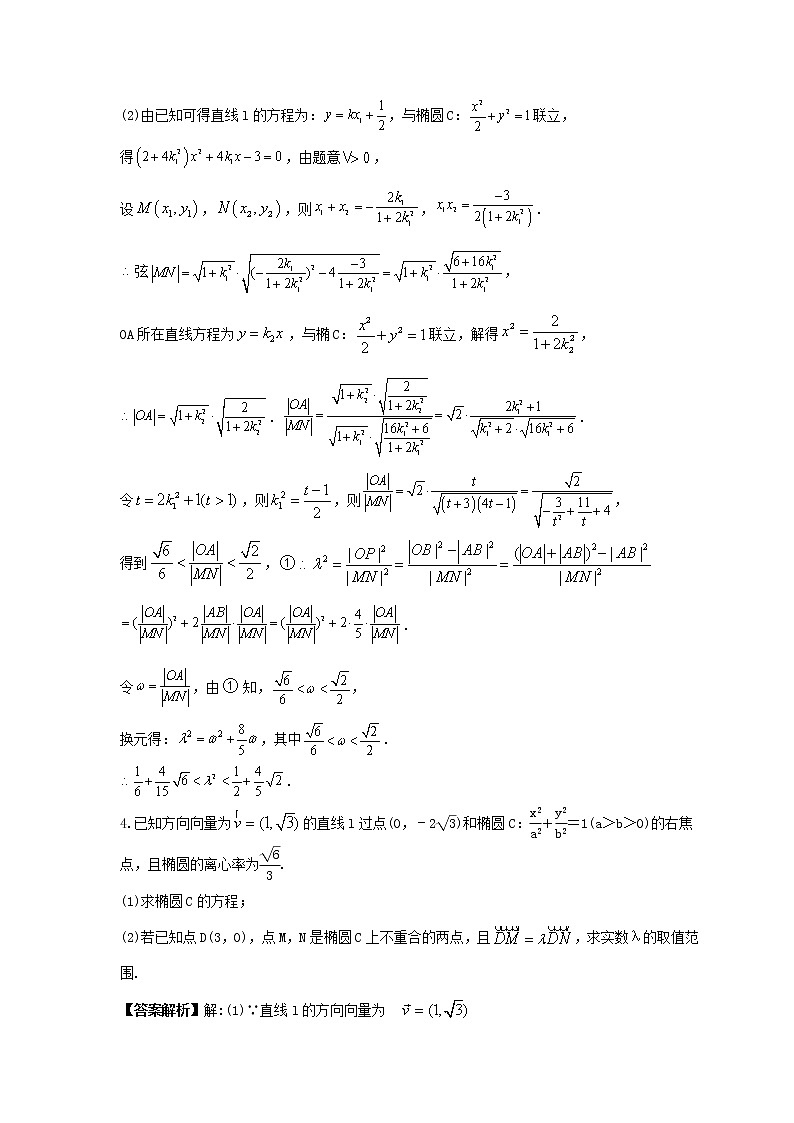 (2)由已知可得直线l的方程为: y = kx₁ + 1/2 ,与椭圆C: x²/2 + y² = 1 联立,
得 (2+4k₁²)x² + 4k₁x − 3 = 0 ,由题意 V> 0 ,
设 M(x₁, y₁) , N(x₂, y₂) ,则 x₁ + x₂ = −2k₁/(1+2k₁²) , x₁x₂ = −3/(2(1+2k₁²)) .
∴ 弦|MN| = √(1+k₁²) · √((−2k₁/(1+2k₁²))² − 4 −3/(1+2k₁²)) = √(1+k₁²) · √(6+16k₁²)/(1+2k₁²) ,
OA所在直线方程为 y = k₂x ,与椭C: x²/2 + y² = 1 联立,解得 x² = 2/(1+2k₂²) ,
∴|OA| = √(1+k₂²) · √(2/(1+2k₂²)) . |OA|/|MN| = (√(1+k₂²) · √(2/(1+2k₂²)))/(√(1+k₁²) · √(16k₁²+6)/(1+2k₁²)) = √2 · (2k₁²+1)/(√(k₁²+2) · √(16k₁²+6)) .
令 t = 2k₁² + 1(t > 1) ,则 k₁² = (t−1)/2 ,则 |OA|/|MN| = √2 · t/√((t+3)(4t−1)) = √2/√(−3/t² + 11/t + 4) ,
得到 √6/6 < |OA|/|MN| < √2/2 , ①∴ λ² = |OP|²/|MN|² = (|OB|² − |AB|²)/|MN|² = ((|OA|+|AB|)² − |AB|²)/|MN|²
= (|OA|/|MN|)² + 2 |AB|/|MN| · |OA|/|MN| = (|OA|/|MN|)² + 2· 4/5 · |OA|/|MN| .
令 ω = |OA|/|MN| ,由①知, √6/6 < ω < √2/2 ,
换元得: λ² = ω² + 8/5 ω ,其中 √6/6 < ω < √2/2 .
∴ 1/6 + 4/15 √6 < λ² < 1/2 + 4/5 √2 .
4.已知方向向量为 v = (1, √3) 的直线l过点(0,﹣2√3)和椭圆C: x²/a² + y²/b² =1(a＞b＞0)的右焦
点,且椭圆的离心率为 √6/3 .
(1)求椭圆C的方程;
(2)若已知点D(3,0),点M,N是椭圆C上不重合的两点,且 DM = λDN ,求实数λ的取值范
围.
【答案解析】解:(1)∵直线l的方向向量为 v⃗ = (1, √3)